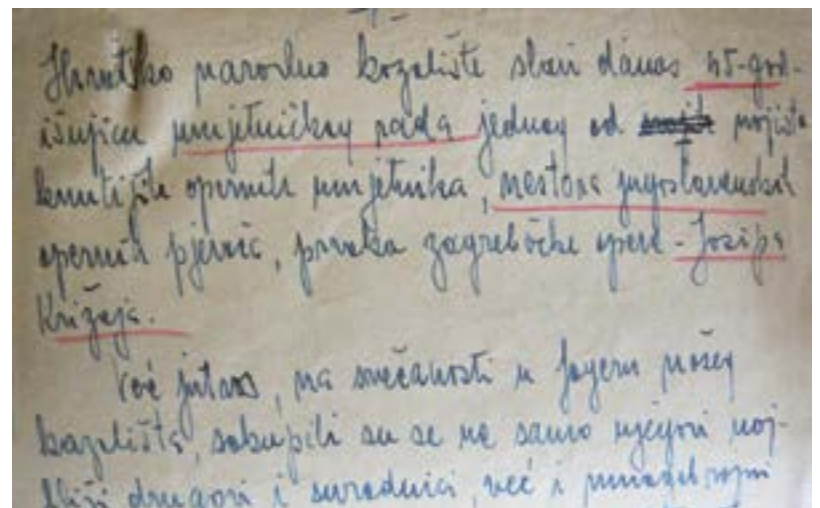 - 1 -
Hrvatsko narodno kazalište slavi danas 45-god-
išnjicu umjetničkog rada jednog od najista
knutijih opernih umjetnika, nestora jugoslavenskih
opernih pjevača, prvaka zagrebačke opere - Josipa
Križaja.
Već jutros, na svečanosti u foyeru našeg
kazališta, sakupili su se ne samo njegovi naj-
bliži drugovi i suradnici, već i mnogobrojni